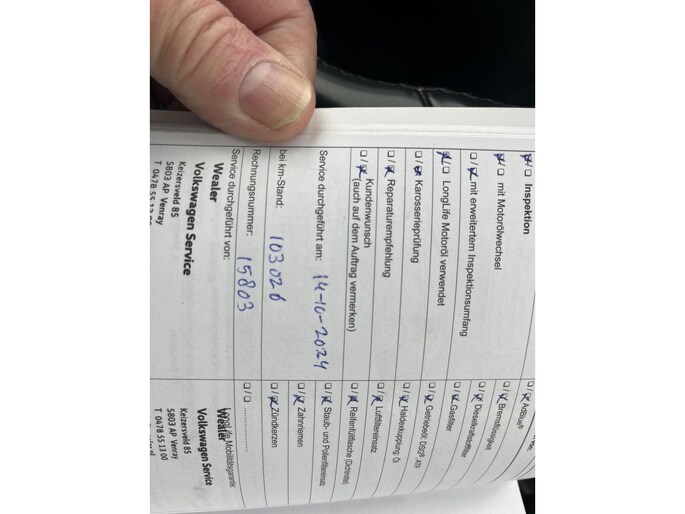 Inspektion
mit Motorölwechsel
mit erweitertem Inspektionsumfang
LongLife Motoröl verwendet
Karosserieprüfung
Reparaturempfehlung
Kundenwunsch
(auch auf dem Auftrag vermerken)
Service durchgeführt am: 14-10-2024
bei km-Stand: 103026
Rechnungsnummer: 15803
Service durchgeführt von:
Wealer
Volkswagen Service
Keizersveld 85
5803 AP Venray
AdBlue®
Bremsflüssigkeit
Dieselkraftstofffilter
Gasfilter
Getriebeöl: DSG®, ATF
Haldexkupplung: Öl
Luftfiltereinsatz
Reifenfüllflasche (Dichtmittel)
Staub- und Pollenfiltereinsatz
Zahnriemen
Zündkerzen
LongLife Mobilitätsgarantie
Wealer
Volkswagen Service
Keizersveld 85
5803 AP Venray
T 0478 55 13 00